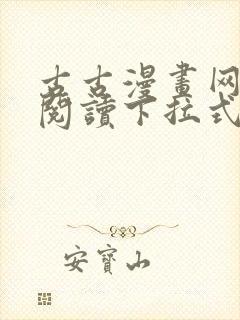 古古漫畫网
閱讀下拉式
安寶山